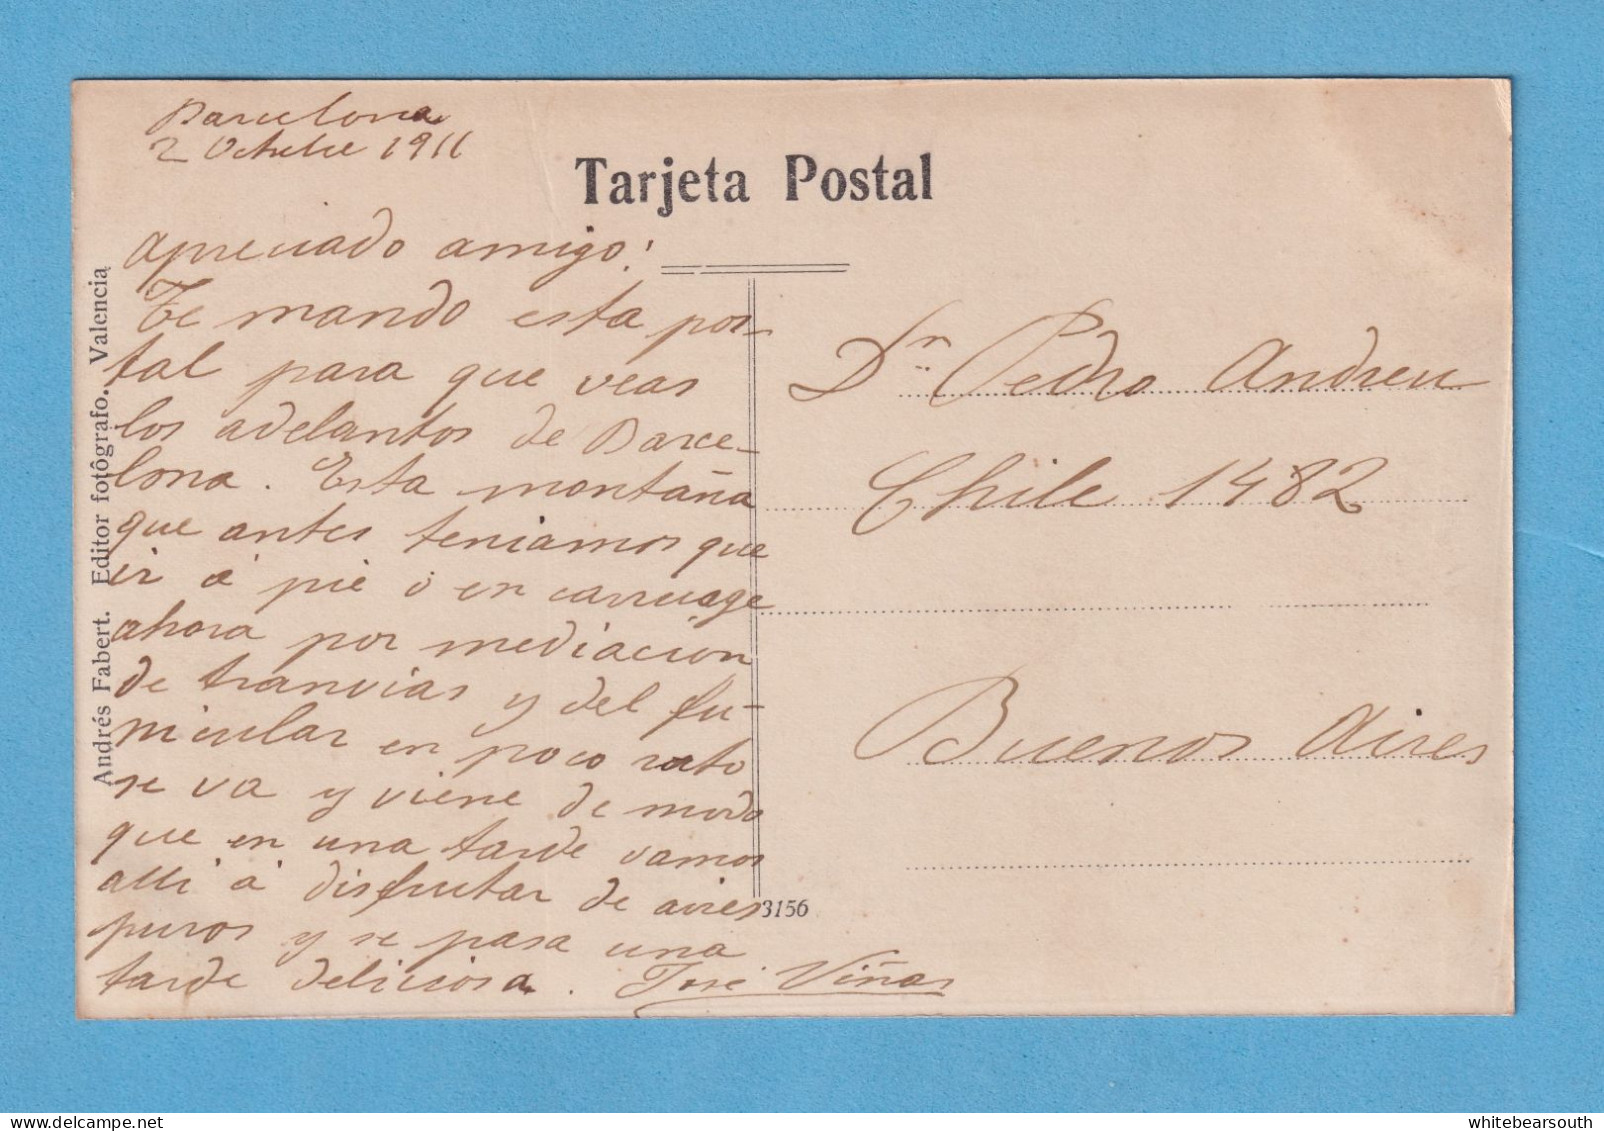 Barcelona
2 Octubre 1911
Tarjeta Postal
apreciado amigo!
Te mando esta pos-
tal para que veas
los adelantos de Barce-
lona. Esta montaña
que antes teniamos que
ir á pié ó en carruage
ahora por mediación
de tranvias y del fu-
nicular en poco rato
se va y viene de modo
que en una tarde vamos
alli á disfrutar de aires
puros y se pasa una
tarde deliciosa. José Viñas
Dn Pedro Andreu
Chile 1482
Buenos Aires
Andrés Fabert. Editor fotôgrafo. Valencia
3156
whitebearsouth